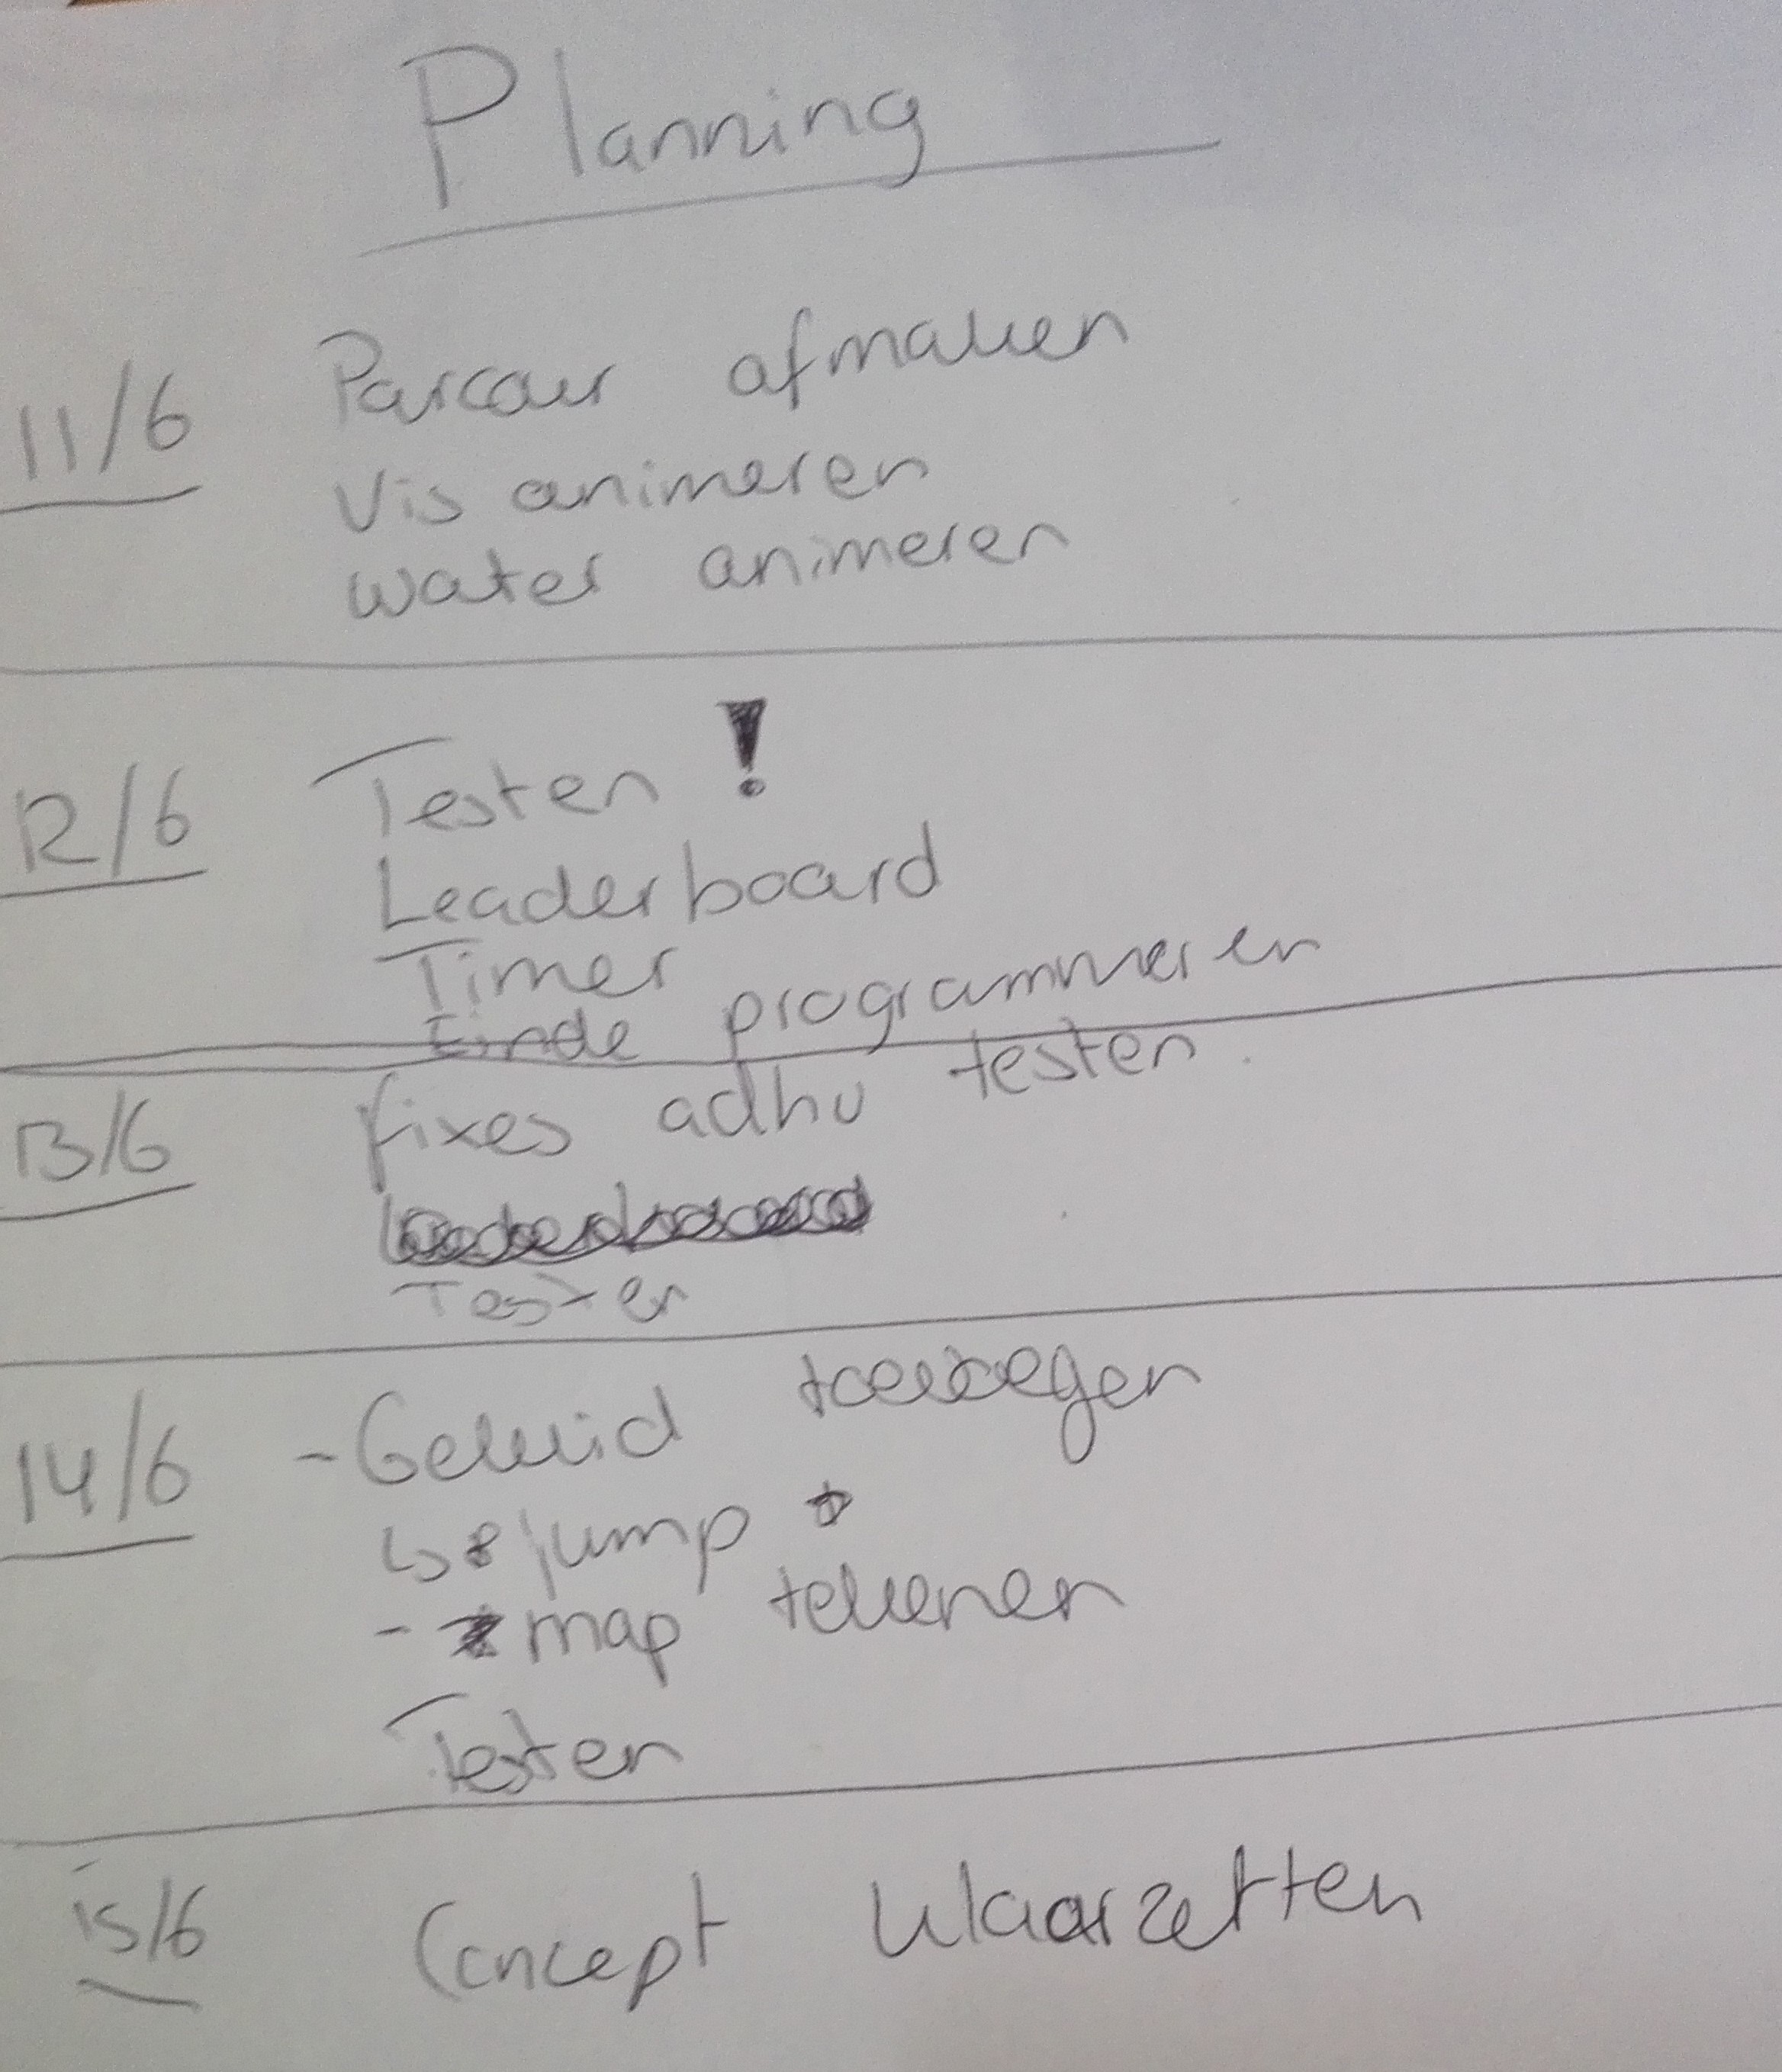 Planning
11/6 Parcour afmaken
Vis animeren
water animeren
12/6 Testen !
Leaderboard
Timer
Einde programmeren
13/6 fixes adhv testen
Testen
14/6 - Geluid toevoegen
↳ jump
- map tekenen
Testen
15/6 Concept klaarzetten